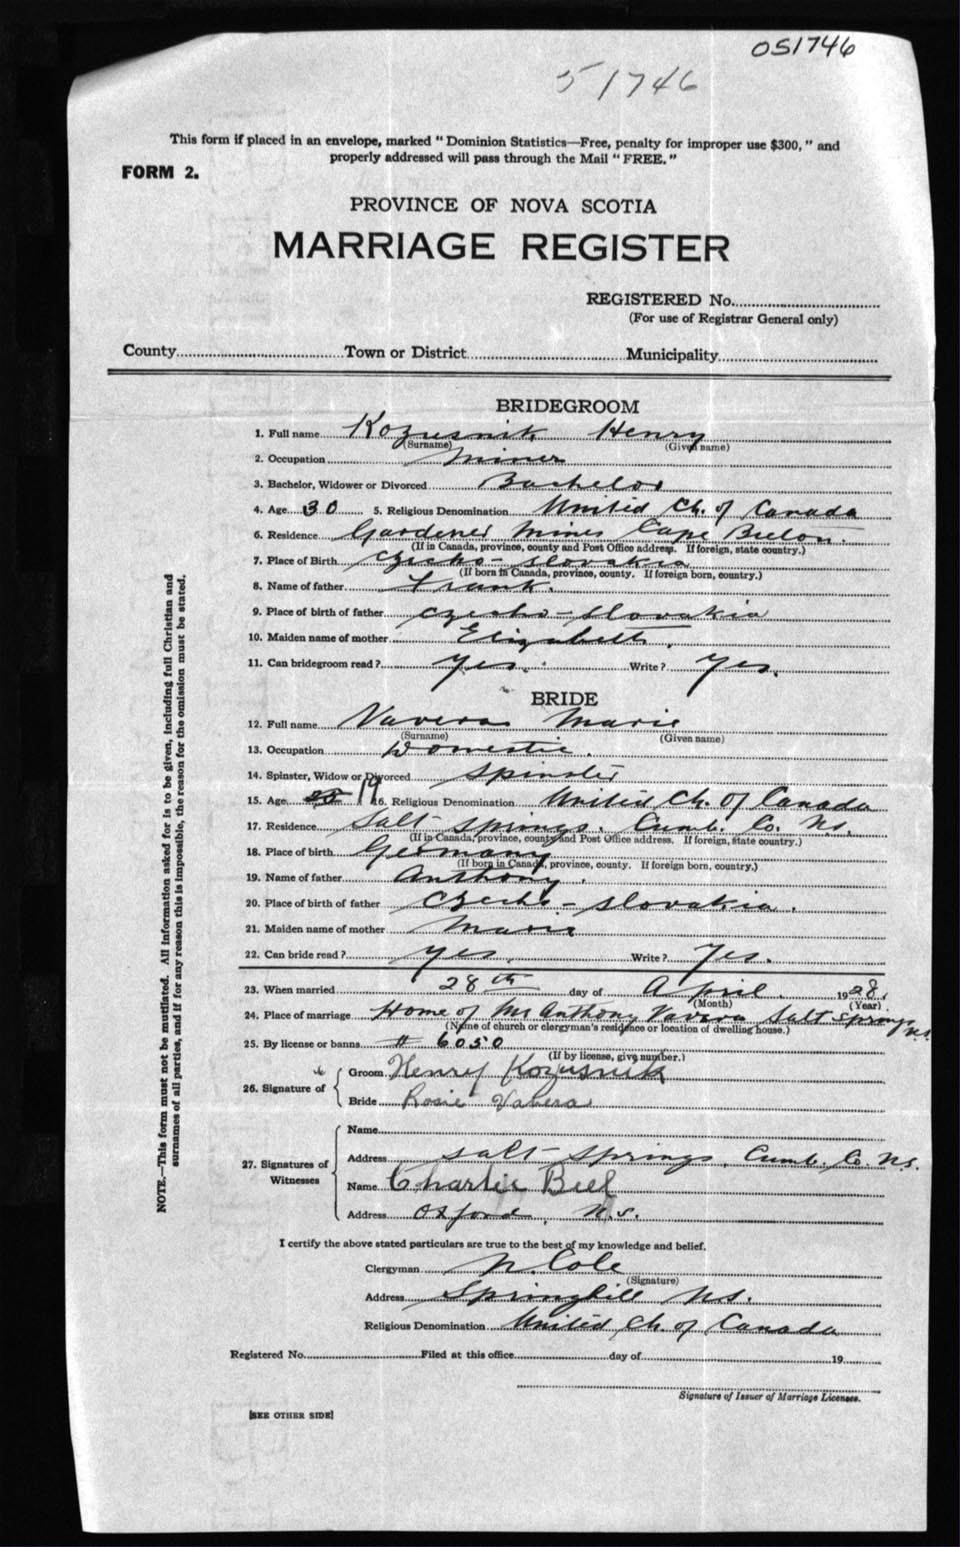 051746
51746
This form if placed in an envelope, marked "Dominion Statistics—Free, penalty for improper use $300," and
properly addressed will pass through the Mail "FREE."
FORM 2.
PROVINCE OF NOVA SCOTIA
MARRIAGE REGISTER
REGISTERED No.
(For use of Registrar General only)
County Town or District Municipality
BRIDEGROOM
1. Full name Kozusnik Henry
(Surname) (Given name)
2. Occupation Miner
3. Bachelor, Widower or Divorced Bachelor
4. Age 30 5. Religious Denomination United Ch. of Canada
6. Residence Gardener Mines Cape Breton.
(If in Canada, province, county and Post Office address. If foreign, state country.)
7. Place of Birth Czecho-slovakia
(If born in Canada, province, county. If foreign born, country.)
8. Name of father Frank.
9. Place of birth of father Czecho-slovakia
10. Maiden name of mother Elizabeth.
11. Can bridegroom read? Yes. Write? Yes.
BRIDE
12. Full name Vavera Marie
(Surname) (Given name)
13. Occupation Domestic.
14. Spinster, Widow or Divorced Spinster
15. Age 19 16. Religious Denomination United Ch. of Canada
17. Residence Salt Springs. Cumb. Co. Ns.
(If in Canada, province, county and Post Office address. If foreign, state country.)
18. Place of birth Germany
(If born in Canada, province, county. If foreign born, country.)
19. Name of father Anthony.
20. Place of birth of father Czecho-slovakia.
21. Maiden name of mother Marie
22. Can bride read? Yes. Write? Yes.
23. When married 28th day of April. 1928.
(Month) (Year)
24. Place of marriage Home of Mr Anthony Vavera Salt Springs Ns.
(Name of church or clergyman's residence or location of dwelling house.)
25. By license or banns # 6050
(If by license, give number.)
26. Signature of
Groom Henry Kozusnik
Bride Rosie Vavera
27. Signatures of Witnesses
Name
Address Salt Springs, Cumb. Co. N.S.
Name Charlie Beel
Address Oxford, N.S.
I certify the above stated particulars are true to the best of my knowledge and belief.
Clergyman N. Cole
(Signature)
Address Springhill Ns.
Religious Denomination United Ch. of Canada
Registered No. Filed at this office day of 19
Signature of Issuer of Marriage Licenses.
[SEE OTHER SIDE]
NOTE.—This form must not be mutilated. All information asked for is to be given, including full Christian and
surnames of all parties, and if for any reason this is impossible, the reason for the omission must be stated.